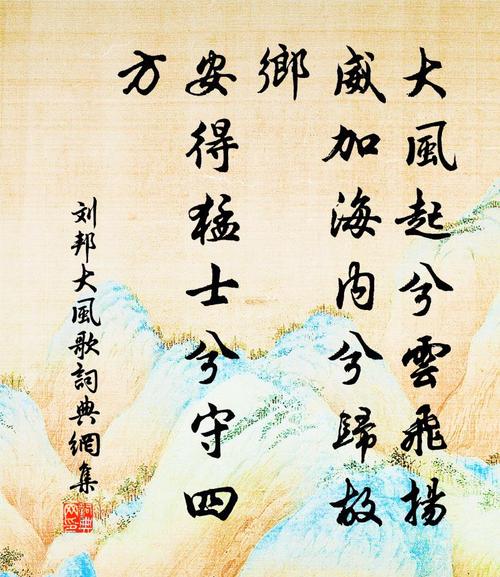 大風起兮雲飛揚
威加海内兮歸故
鄉
安得猛士兮守四
方
刘邦大風歌詞典網集
詞典网印